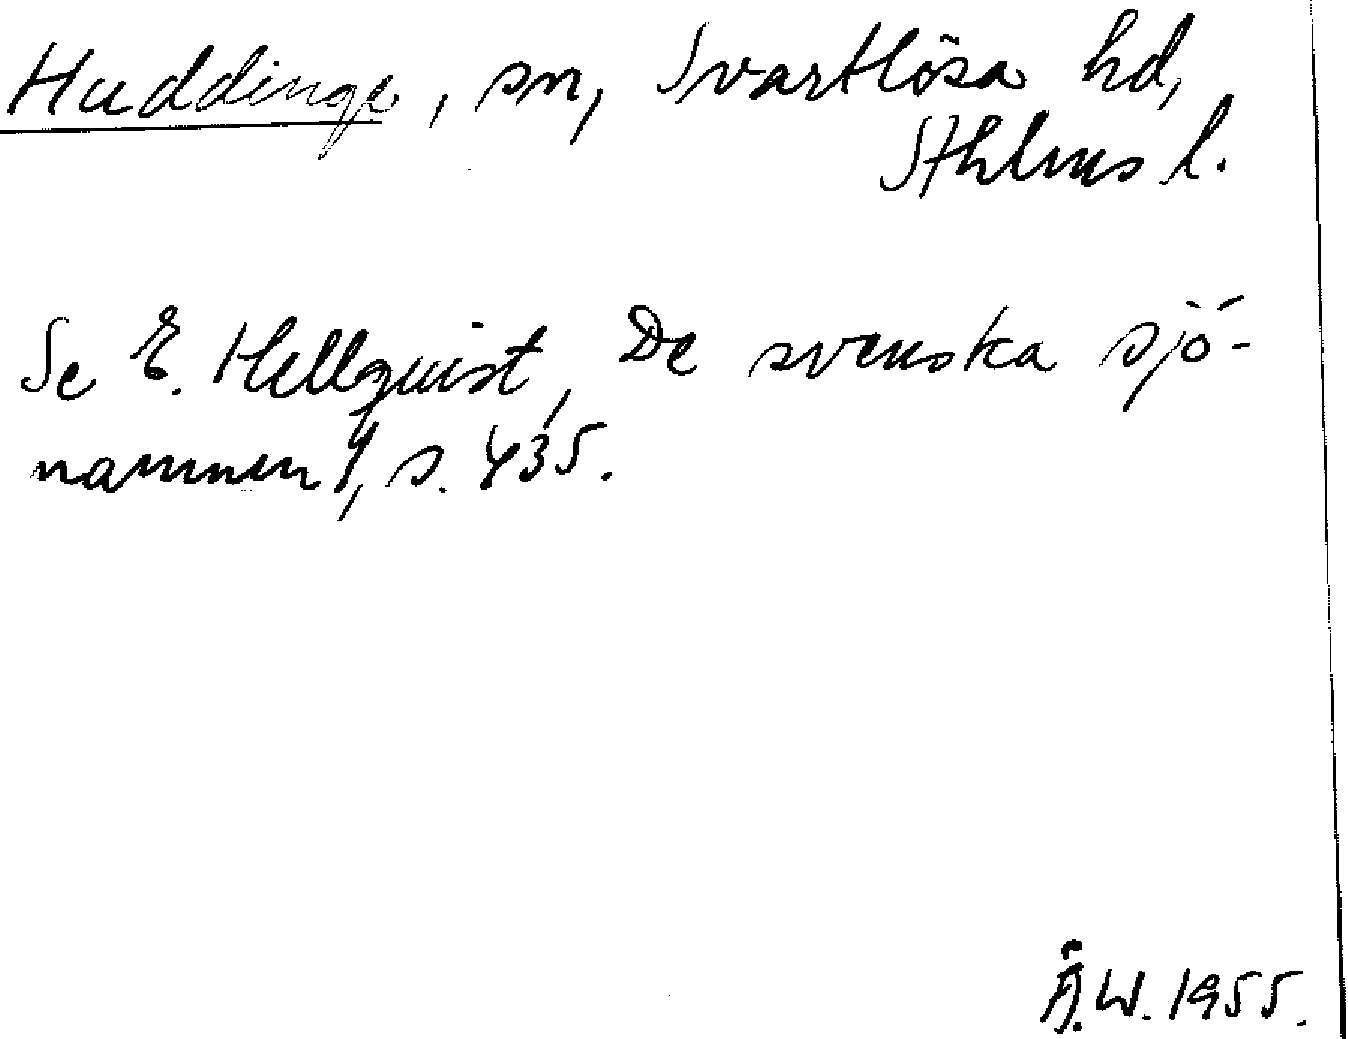 Huddinge, sn, Svartlösa hd,
Sthlms l.
Se E. Hellquist, De svenska sjö-
namnen 1, s. 435.
Å.W. 1955.